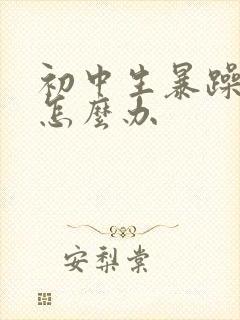 初中生暴躁
怎麼办
安梨棠